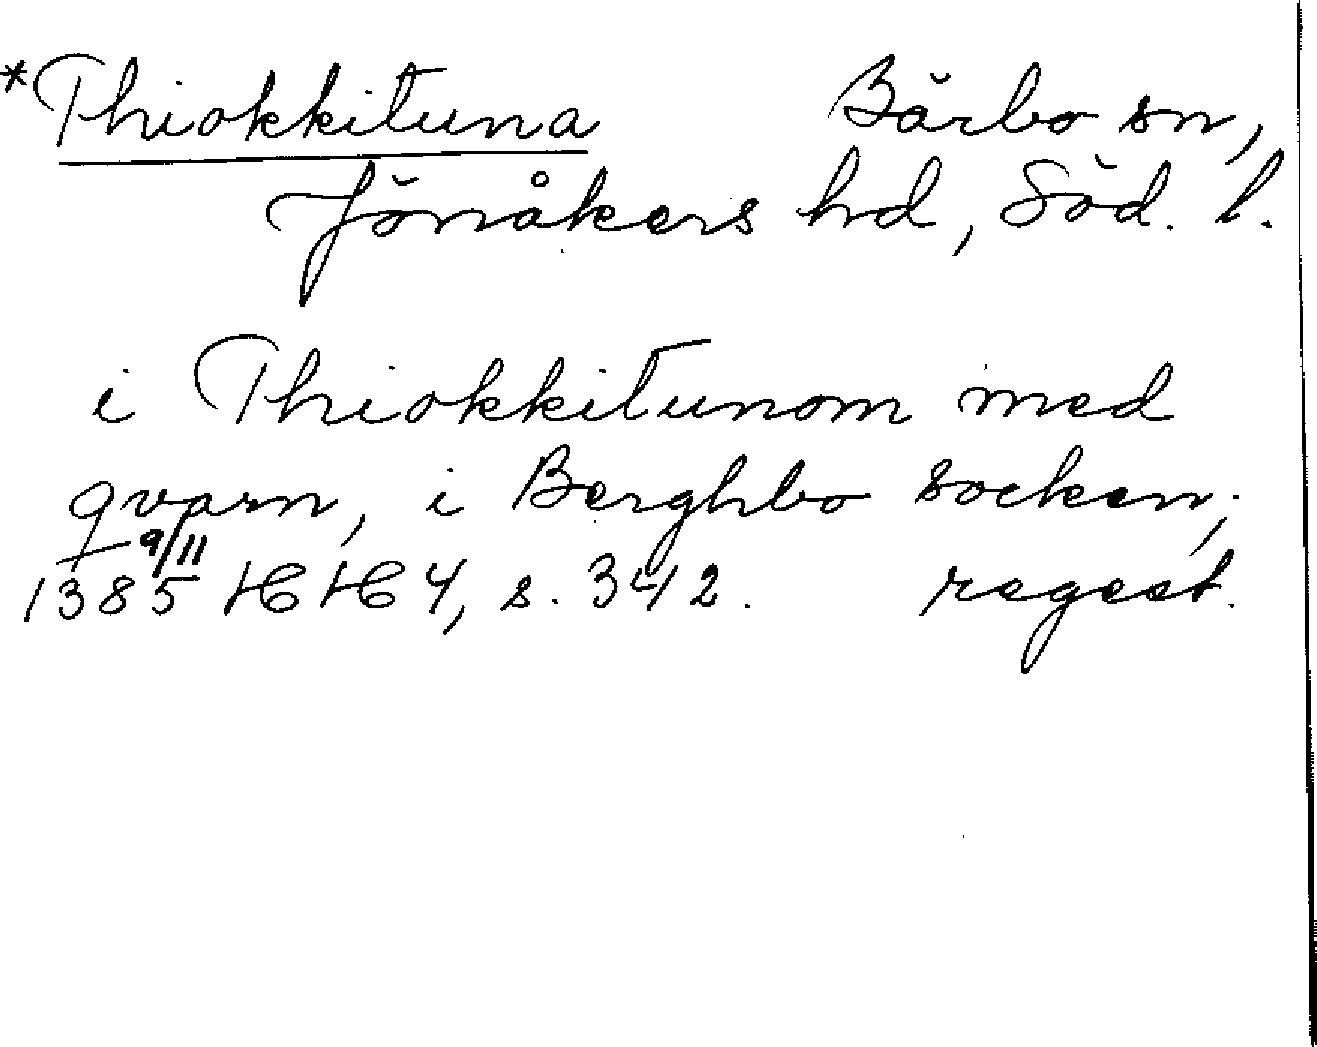 *Thiokkituna Bärbo sn,
Jönåkers hd, Söd. l.
i Thiokkitunom med
qvarn, i Berghbo socken;
1385 9/11 HH 4, s. 342. regest.